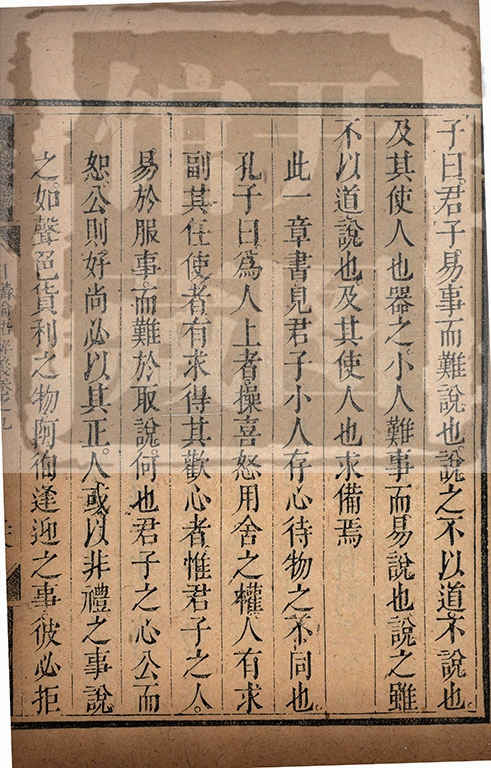 子曰君子易事而難說也說之不以道不說也
及其使人也器之小人難事而易說也說之雖
不以道說也及其使人也求備焉
此一章書見君子小人存心待物之不同也
孔子曰爲人上者操喜怒用舍之權人有求
副其任使者有求得其歡心者惟君子之人
易於服事而難於取說何也君子之心公而
恕公則好尚必以其正人或以非禮之事說
之如聲色貨利之物阿徇逢迎之事彼必拒